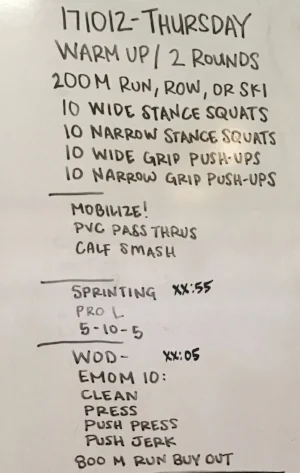 171012-THURSDAY
WARM UP / 2 ROUNDS
200M RUN, ROW, OR SKI
10 WIDE STANCE SQUATS
10 NARROW STANCE SQUATS
10 WIDE GRIP PUSH-UPS
10 NARROW GRIP PUSH-UPS
MOBILIZE!
PVC PASS THRUS
CALF SMASH
SPRINTING XX:55
PRO L
5-10-5
WOD- XX:05
EMOM 10:
CLEAN
PRESS
PUSH PRESS
PUSH JERK
800 M RUN BUY OUT